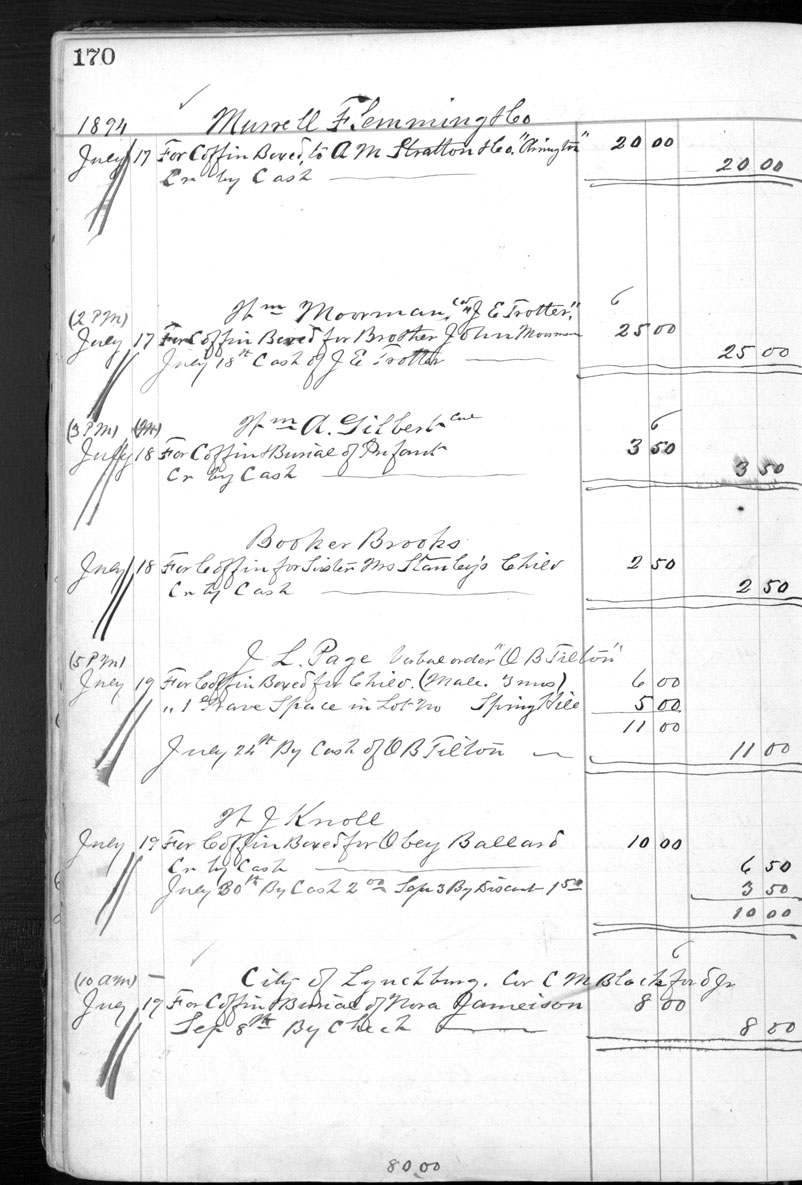 170
1894 Murrell Flemming & Co
July 17 For Coffin Boxed, to A M Stratton & Co. "Arington" 20 00
Cr by Cash 20 00
(2 PM) Wm Moorman, "J E Trotter," 6
July 17 For Coffin Boxed for Brother John Moorman 25 00
July 18th Cash of J E Trotter 25 00
(3 PM) (M) Wm A. Gilbert 6
July 18 For Coffin & Burial of Infant 3 50
Cr by Cash 3 50
Booker Brooks
July 18 For Coffin for Sister Mrs Stanley's Child 2 50
Cr by Cash 2 50
(5 PM) J L. Page Verbal order "O B Tilton"
July 19 For Coffin Boxed for Child. (Male. 3 mos) 6 00
" 1 Grave Space in Lot No Spring Hill 5 00
11 00
July 24th By Cash of O B Tilton 11 00
W J Knoll
July 19 For Coffin Boxed for Obey Ballard 10 00
Cr by Cash 6 50
July 30th By Cash 2 00 Sep 3 By Discount 1 50 3 50
10 00
6
(10 AM) City of Lynchburg. Cor C M Blackford Jr
July 19 For Coffin & Burial of Nora Jameison 8 00
Sep 8th By Check 8 00
80.00